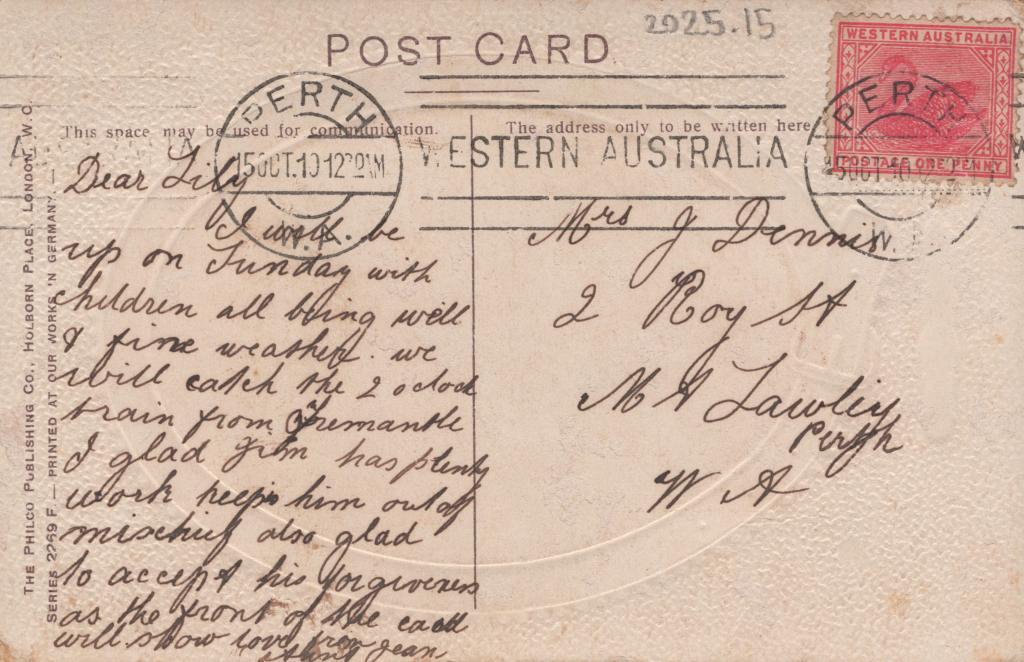 2025.15
POST CARD
WESTERN AUSTRALIA
POSTAGE ONE PENNY
PERTH
15 OCT.10 12 30AM
W.A.
WESTERN AUSTRALIA
PERTH
15 OCT.10
W.A.
This space may be used for communication.
The address only to be written here
Dear Lily
I will be
up on Sunday with
children all being well
& fine weather. we
will catch the 2 oclock
train from Fremantle
I glad Jim has plenty
work keeps him out of
mischief also glad
to accept his forgiveness
as the front of the card
will show love from
Aunt Jean
Mrs J Dennis
2 Roy St
Mt Lawley
Perth
W A
THE PHILCO PUBLISHING CO., HOLBORN PLACE, LONDON, W.C.
SERIES 2269 F. — PRINTED AT OUR WORKS IN GERMANY. —